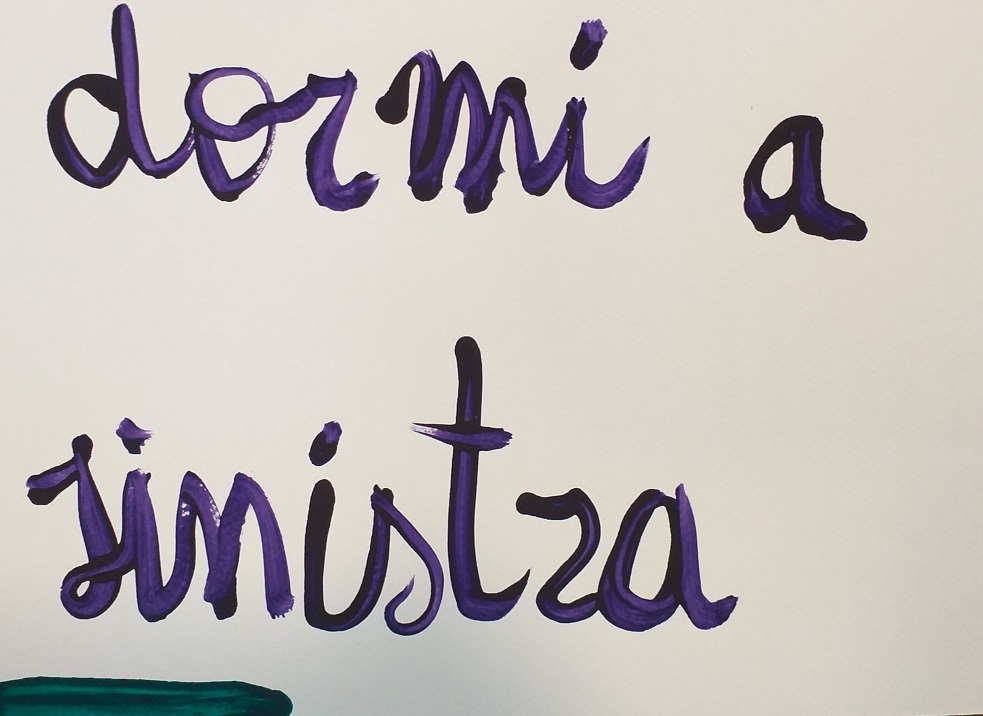 dormi a
sinistra